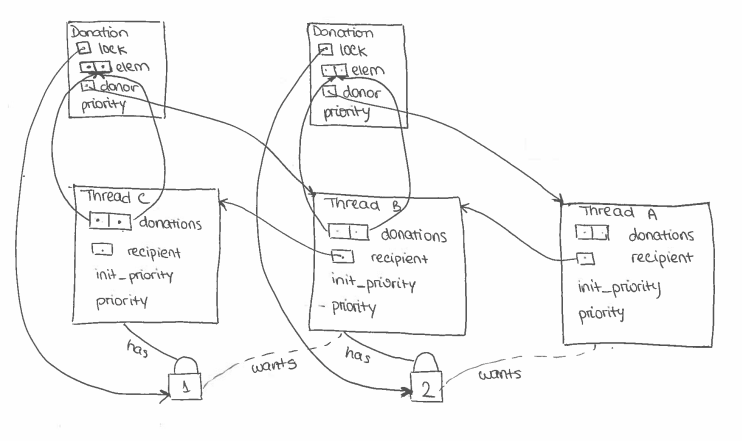 Donation
lock
elem
donor
priority
Donation
lock
elem
donor
priority
Thread C
donations
recipient
init_priority
priority
Thread B
donations
recipient
init_priority
priority
Thread A
donations
recipient
init_priority
priority
has
1
wants
has
2
wants